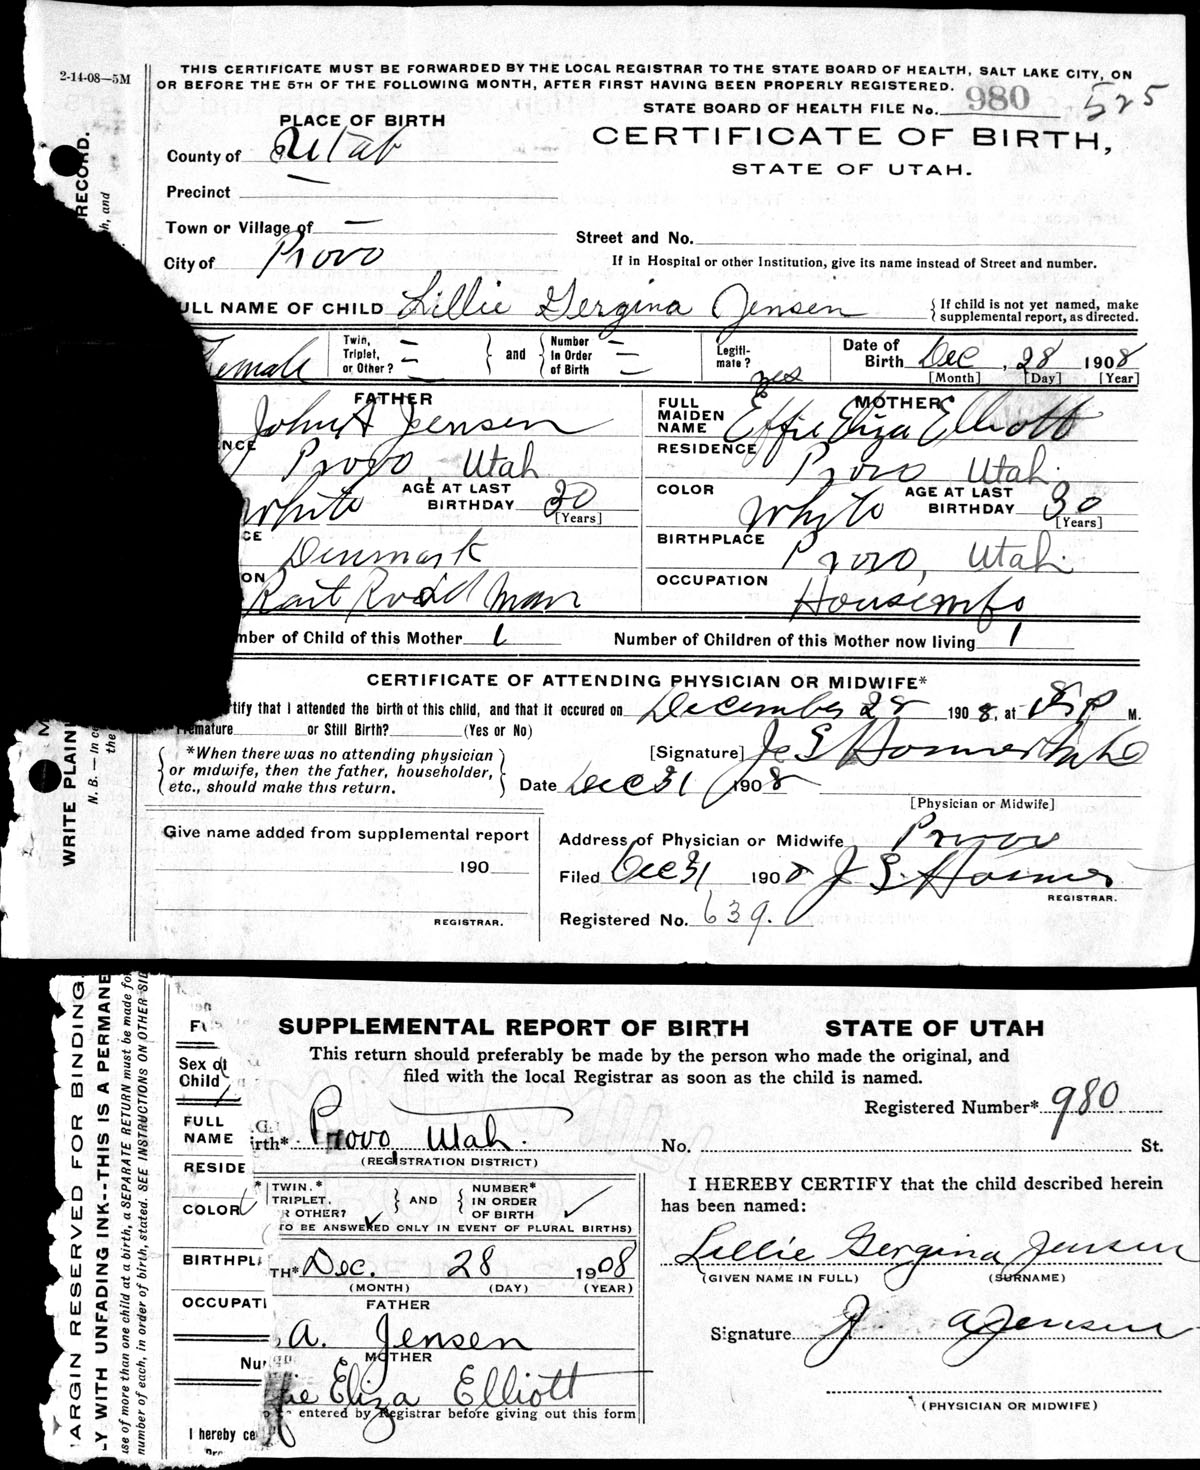 2-14-08—5M
THIS CERTIFICATE MUST BE FORWARDED BY THE LOCAL REGISTRAR TO THE STATE BOARD OF HEALTH, SALT LAKE CITY, ON
OR BEFORE THE 5TH OF THE FOLLOWING MONTH, AFTER FIRST HAVING BEEN PROPERLY REGISTERED.
STATE BOARD OF HEALTH FILE No. 980 525
PLACE OF BIRTH
CERTIFICATE OF BIRTH,
STATE OF UTAH.
County of Utah
Precinct —
Town or Village of —
City of Provo
Street and No.
If in Hospital or other Institution, give its name instead of Street and number.
ULL NAME OF CHILD Lillie Gergina Jensen
{ If child is not yet named, make
supplemental report, as directed.
Female
Twin, Triplet, or Other? } and { Number In Order of Birth
Legiti-mate? yes
Date of Birth Dec , 28 1908
[Month] [Day] [Year]
FATHER
John A Jensen
NCE
Provo, Utah
White AGE AT LAST BIRTHDAY 30
[Years]
CE
Denmark
ON
Rail Road Man
MOTHER
FULL MAIDEN NAME Effie Eliza Elliott
RESIDENCE
Provo Utah.
COLOR White AGE AT LAST BIRTHDAY 30
[Years]
BIRTHPLACE Provo, Utah.
OCCUPATION
Housewife
mber of Child of this Mother 1 Number of Children of this Mother now living 1
CERTIFICATE OF ATTENDING PHYSICIAN OR MIDWIFE*
tify that I attended the birth of this child, and that it occured on December 28 1908, at M.
remature or Still Birth? (Yes or No)
{ *When there was no attending physician
or midwife, then the father, householder,
etc., should make this return. }
[Signature]
Date Dec 31 1908
[Physician or Midwife]
Give name added from supplemental report
190
REGISTRAR.
Address of Physician or Midwife Provo
Filed Dec 31 1908
REGISTRAR.
Registered No. 639.
RECORD.
h, and
WRITE PLAIN
N. B. — In c
the
SUPPLEMENTAL REPORT OF BIRTH STATE OF UTAH
This return should preferably be made by the person who made the original, and
filed with the local Registrar as soon as the child is named.
Registered Number* 980
Sex of
Child
FULL
NAME
irth* Provo Utah.
(REGISTRATION DISTRICT)
No. St.
RESIDE
COLOR
* TWIN.*
TRIPLET.
R OTHER? } AND { NUMBER*
IN ORDER
OF BIRTH
TO BE ANSWERED ONLY IN EVENT OF PLURAL BIRTHS)
I HEREBY CERTIFY that the child described herein
has been named:
Lillie Gergina Jensen
(GIVEN NAME IN FULL) (SURNAME)
BIRTHPL
TH* Dec. 28 1908
(MONTH) (DAY) (YEAR)
OCCUPATI
FATHER
a. Jensen
Signature J A Jensen
MOTHER
fie Eliza Elliott
entered by Registrar before giving out this form
(PHYSICIAN OR MIDWIFE)
I hereby ce
ARGIN RESERVED FOR BINDING.
LY WITH UNFADING INK--THIS IS A PERMANE
use of more than one child at a birth, a SEPARATE RETURN must be made fo
number of each, in order of birth, stated. SEE INSTRUCTIONS ON OTHER SID